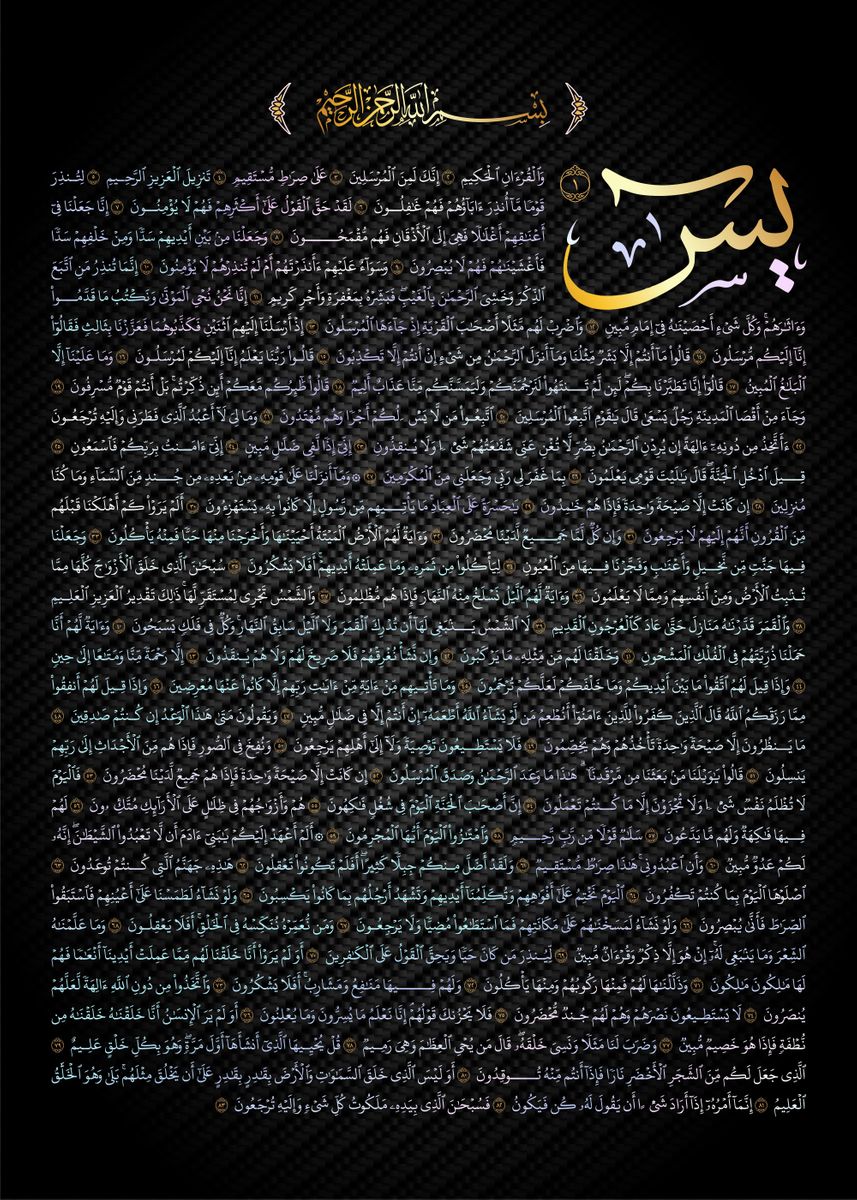 بِسْمِ اللَّهِ الرَّحْمَٰنِ الرَّحِيمِ
يسٓ ١ وَالْقُرْءَانِ الْحَكِيمِ ٢ إِنَّكَ لَمِنَ الْمُرْسَلِينَ ٣ عَلَىٰ صِرَاطٍ مُسْتَقِيمٍ ٤ تَنْزِيلَ الْعَزِيزِ الرَّحِيمِ ٥ لِتُنْذِرَ
قَوْمًا مَا أُنْذِرَ ءَابَاؤُهُمْ فَهُمْ غَافِلُونَ ٦ لَقَدْ حَقَّ الْقَوْلُ عَلَىٰ أَكْثَرِهِمْ فَهُمْ لَا يُؤْمِنُونَ ٧ إِنَّا جَعَلْنَا فِي
أَعْنَاقِهِمْ أَغْلَالًا فَهِيَ إِلَى الْأَذْقَانِ فَهُمْ مُقْمَحُونَ ٨ وَجَعَلْنَا مِنْ بَيْنِ أَيْدِيهِمْ سَدًّا وَمِنْ خَلْفِهِمْ سَدًّا
فَأَغْشَيْنَاهُمْ فَهُمْ لَا يُبْصِرُونَ ٩ وَسَوَاءٌ عَلَيْهِمْ ءَأَنْذَرْتَهُمْ أَمْ لَمْ تُنْذِرْهُمْ لَا يُؤْمِنُونَ ١٠ إِنَّمَا تُنْذِرُ مَنِ اتَّبَعَ
الذِّكْرَ وَخَشِيَ الرَّحْمَٰنَ بِالْغَيْبِ فَبَشِّرْهُ بِمَغْفِرَةٍ وَأَجْرٍ كَرِيمٍ ١١ إِنَّا نَحْنُ نُحْيِ الْمَوْتَىٰ وَنَكْتُبُ مَا قَدَّمُوا
وَءَاثَارَهُمْ وَكُلَّ شَيْءٍ أَحْصَيْنَاهُ فِي إِمَامٍ مُبِينٍ ١٢ وَاضْرِبْ لَهُمْ مَثَلًا أَصْحَابَ الْقَرْيَةِ إِذْ جَاءَهَا الْمُرْسَلُونَ ١٣ إِذْ أَرْسَلْنَا إِلَيْهِمُ اثْنَيْنِ فَكَذَّبُوهُمَا فَعَزَّزْنَا بِثَالِثٍ فَقَالُوا
إِنَّا إِلَيْكُمْ مُرْسَلُونَ ١٤ قَالُوا مَا أَنْتُمْ إِلَّا بَشَرٌ مِثْلُنَا وَمَا أَنْزَلَ الرَّحْمَٰنُ مِنْ شَيْءٍ إِنْ أَنْتُمْ إِلَّا تَكْذِبُونَ ١٥ قَالُوا رَبُّنَا يَعْلَمُ إِنَّا إِلَيْكُمْ لَمُرْسَلُونَ ١٦ وَمَا عَلَيْنَا إِلَّا
الْبَلَاغُ الْمُبِينُ ١٧ قَالُوا إِنَّا تَطَيَّرْنَا بِكُمْ لَئِنْ لَمْ تَنْتَهُوا لَنَرْجُمَنَّكُمْ وَلَيَمَسَّنَّكُمْ مِنَّا عَذَابٌ أَلِيمٌ ١٨ قَالُوا طَائِرُكُمْ مَعَكُمْ أَئِنْ ذُكِّرْتُمْ بَلْ أَنْتُمْ قَوْمٌ مُسْرِفُونَ ١٩
وَجَاءَ مِنْ أَقْصَا الْمَدِينَةِ رَجُلٌ يَسْعَىٰ قَالَ يَا قَوْمِ اتَّبِعُوا الْمُرْسَلِينَ ٢٠ اتَّبِعُوا مَنْ لَا يَسْـَٔلُكُمْ أَجْرًا وَهُمْ مُهْتَدُونَ ٢١ وَمَا لِيَ لَا أَعْبُدُ الَّذِي فَطَرَنِي وَإِلَيْهِ تُرْجَعُونَ
٢٢ ءَأَتَّخِذُ مِنْ دُونِهِ ءَالِهَةً إِنْ يُرِدْنِ الرَّحْمَٰنُ بِضُرٍّ لَا تُغْنِ عَنِّي شَفَاعَتُهُمْ شَيْـًٔا وَلَا يُنْقِذُونِ ٢٣ إِنِّي إِذًا لَفِي ضَلَالٍ مُبِينٍ ٢٤ إِنِّي ءَامَنْتُ بِرَبِّكُمْ فَاسْمَعُونِ ٢٥
قِيلَ ادْخُلِ الْجَنَّةَ قَالَ يَا لَيْتَ قَوْمِي يَعْلَمُونَ ٢٦ بِمَا غَفَرَ لِي رَبِّي وَجَعَلَنِي مِنَ الْمُكْرَمِينَ ٢٧ ۞ وَمَا أَنْزَلْنَا عَلَىٰ قَوْمِهِ مِنْ بَعْدِهِ مِنْ جُنْدٍ مِنَ السَّمَاءِ وَمَا كُنَّا
مُنْزِلِينَ ٢٨ إِنْ كَانَتْ إِلَّا صَيْحَةً وَاحِدَةً فَإِذَا هُمْ خَامِدُونَ ٢٩ يَا حَسْرَةً عَلَى الْعِبَادِ مَا يَأْتِيهِمْ مِنْ رَسُولٍ إِلَّا كَانُوا بِهِ يَسْتَهْزِءُونَ ٣٠ أَلَمْ يَرَوْا كَمْ أَهْلَكْنَا قَبْلَهُمْ
مِنَ الْقُرُونِ أَنَّهُمْ إِلَيْهِمْ لَا يَرْجِعُونَ ٣١ وَإِنْ كُلٌّ لَمَّا جَمِيعٌ لَدَيْنَا مُحْضَرُونَ ٣٢ وَءَايَةٌ لَهُمُ الْأَرْضُ الْمَيْتَةُ أَحْيَيْنَاهَا وَأَخْرَجْنَا مِنْهَا حَبًّا فَمِنْهُ يَأْكُلُونَ ٣٣ وَجَعَلْنَا
فِيهَا جَنَّاتٍ مِنْ نَخِيلٍ وَأَعْنَابٍ وَفَجَّرْنَا فِيهَا مِنَ الْعُيُونِ ٣٤ لِيَأْكُلُوا مِنْ ثَمَرِهِ وَمَا عَمِلَتْهُ أَيْدِيهِمْ أَفَلَا يَشْكُرُونَ ٣٥ سُبْحَانَ الَّذِي خَلَقَ الْأَزْوَاجَ كُلَّهَا مِمَّا
تُنْبِتُ الْأَرْضُ وَمِنْ أَنْفُسِهِمْ وَمِمَّا لَا يَعْلَمُونَ ٣٦ وَءَايَةٌ لَهُمُ الَّيْلُ نَسْلَخُ مِنْهُ النَّهَارَ فَإِذَا هُمْ مُظْلِمُونَ ٣٧ وَالشَّمْسُ تَجْرِي لِمُسْتَقَرٍّ لَهَا ذَٰلِكَ تَقْدِيرُ الْعَزِيزِ الْعَلِيمِ
٣٨ وَالْقَمَرَ قَدَّرْنَاهُ مَنَازِلَ حَتَّىٰ عَادَ كَالْعُرْجُونِ الْقَدِيمِ ٣٩ لَا الشَّمْسُ يَنْبَغِي لَهَا أَنْ تُدْرِكَ الْقَمَرَ وَلَا الَّيْلُ سَابِقُ النَّهَارِ وَكُلٌّ فِي فَلَكٍ يَسْبَحُونَ ٤٠ وَءَايَةٌ لَهُمْ أَنَّا
حَمَلْنَا ذُرِّيَّتَهُمْ فِي الْفُلْكِ الْمَشْحُونِ ٤١ وَخَلَقْنَا لَهُمْ مِنْ مِثْلِهِ مَا يَرْكَبُونَ ٤٢ وَإِنْ نَشَأْ نُغْرِقْهُمْ فَلَا صَرِيخَ لَهُمْ وَلَا هُمْ يُنْقَذُونَ ٤٣ إِلَّا رَحْمَةً مِنَّا وَمَتَاعًا إِلَىٰ حِينٍ
٤٤ وَإِذَا قِيلَ لَهُمُ اتَّقُوا مَا بَيْنَ أَيْدِيكُمْ وَمَا خَلْفَكُمْ لَعَلَّكُمْ تُرْحَمُونَ ٤٥ وَمَا تَأْتِيهِمْ مِنْ ءَايَةٍ مِنْ ءَايَاتِ رَبِّهِمْ إِلَّا كَانُوا عَنْهَا مُعْرِضِينَ ٤٦ وَإِذَا قِيلَ لَهُمْ أَنْفِقُوا
مِمَّا رَزَقَكُمُ اللَّهُ قَالَ الَّذِينَ كَفَرُوا لِلَّذِينَ ءَامَنُوا أَنُطْعِمُ مَنْ لَوْ يَشَاءُ اللَّهُ أَطْعَمَهُ إِنْ أَنْتُمْ إِلَّا فِي ضَلَالٍ مُبِينٍ ٤٧ وَيَقُولُونَ مَتَىٰ هَٰذَا الْوَعْدُ إِنْ كُنْتُمْ صَادِقِينَ ٤٨
مَا يَنْظُرُونَ إِلَّا صَيْحَةً وَاحِدَةً تَأْخُذُهُمْ وَهُمْ يَخِصِّمُونَ ٤٩ فَلَا يَسْتَطِيعُونَ تَوْصِيَةً وَلَا إِلَىٰ أَهْلِهِمْ يَرْجِعُونَ ٥٠ وَنُفِخَ فِي الصُّورِ فَإِذَا هُمْ مِنَ الْأَجْدَاثِ إِلَىٰ رَبِّهِمْ
يَنْسِلُونَ ٥١ قَالُوا يَا وَيْلَنَا مَنْ بَعَثَنَا مِنْ مَرْقَدِنَا هَٰذَا مَا وَعَدَ الرَّحْمَٰنُ وَصَدَقَ الْمُرْسَلُونَ ٥٢ إِنْ كَانَتْ إِلَّا صَيْحَةً وَاحِدَةً فَإِذَا هُمْ جَمِيعٌ لَدَيْنَا مُحْضَرُونَ ٥٣ فَالْيَوْمَ
لَا تُظْلَمُ نَفْسٌ شَيْـًٔا وَلَا تُجْزَوْنَ إِلَّا مَا كُنْتُمْ تَعْمَلُونَ ٥٤ إِنَّ أَصْحَابَ الْجَنَّةِ الْيَوْمَ فِي شُغُلٍ فَاكِهُونَ ٥٥ هُمْ وَأَزْوَاجُهُمْ فِي ظِلَالٍ عَلَى الْأَرَائِكِ مُتَّكِـُٔونَ ٥٦ لَهُمْ
فِيهَا فَاكِهَةٌ وَلَهُمْ مَا يَدَّعُونَ ٥٧ سَلَامٌ قَوْلًا مِنْ رَبٍّ رَحِيمٍ ٥٨ وَامْتَازُوا الْيَوْمَ أَيُّهَا الْمُجْرِمُونَ ٥٩ ۞ أَلَمْ أَعْهَدْ إِلَيْكُمْ يَا بَنِي ءَادَمَ أَنْ لَا تَعْبُدُوا الشَّيْطَانَ إِنَّهُ
لَكُمْ عَدُوٌّ مُبِينٌ ٦٠ وَأَنِ اعْبُدُونِي هَٰذَا صِرَاطٌ مُسْتَقِيمٌ ٦١ وَلَقَدْ أَضَلَّ مِنْكُمْ جِبِلًّا كَثِيرًا أَفَلَمْ تَكُونُوا تَعْقِلُونَ ٦٢ هَٰذِهِ جَهَنَّمُ الَّتِي كُنْتُمْ تُوعَدُونَ ٦٣
اصْلَوْهَا الْيَوْمَ بِمَا كُنْتُمْ تَكْفُرُونَ ٦٤ الْيَوْمَ نَخْتِمُ عَلَىٰ أَفْوَاهِهِمْ وَتُكَلِّمُنَا أَيْدِيهِمْ وَتَشْهَدُ أَرْجُلُهُمْ بِمَا كَانُوا يَكْسِبُونَ ٦٥ وَلَوْ نَشَاءُ لَطَمَسْنَا عَلَىٰ أَعْيُنِهِمْ فَاسْتَبَقُوا
الصِّرَاطَ فَأَنَّىٰ يُبْصِرُونَ ٦٦ وَلَوْ نَشَاءُ لَمَسَخْنَاهُمْ عَلَىٰ مَكَانَتِهِمْ فَمَا اسْتَطَاعُوا مُضِيًّا وَلَا يَرْجِعُونَ ٦٧ وَمَنْ نُعَمِّرْهُ نُنَكِّسْهُ فِي الْخَلْقِ أَفَلَا يَعْقِلُونَ ٦٨ وَمَا عَلَّمْنَاهُ
الشِّعْرَ وَمَا يَنْبَغِي لَهُ إِنْ هُوَ إِلَّا ذِكْرٌ وَقُرْءَانٌ مُبِينٌ ٦٩ لِيُنْذِرَ مَنْ كَانَ حَيًّا وَيَحِقَّ الْقَوْلُ عَلَى الْكَافِرِينَ ٧٠ أَوَلَمْ يَرَوْا أَنَّا خَلَقْنَا لَهُمْ مِمَّا عَمِلَتْ أَيْدِينَا أَنْعَامًا فَهُمْ
لَهَا مَالِكُونَ مَالِكُونَ ٧١ وَذَلَّلْنَاهَا لَهُمْ فَمِنْهَا رَكُوبُهُمْ وَمِنْهَا يَأْكُلُونَ ٧٢ وَلَهُمْ فِيهَا مَنَافِعُ وَمَشَارِبُ أَفَلَا يَشْكُرُونَ ٧٣ وَاتَّخَذُوا مِنْ دُونِ اللَّهِ ءَالِهَةً لَعَلَّهُمْ
يُنْصَرُونَ ٧٤ لَا يَسْتَطِيعُونَ نَصْرَهُمْ وَهُمْ لَهُمْ جُنْدٌ مُحْضَرُونَ ٧٥ فَلَا يَحْزُنْكَ قَوْلُهُمْ إِنَّا نَعْلَمُ مَا يُسِرُّونَ وَمَا يُعْلِنُونَ ٧٦ أَوَلَمْ يَرَ الْإِنْسَانُ أَنَّا خَلَقْنَاهُ خَلَقْنَاهُ مِنْ
نُطْفَةٍ فَإِذَا هُوَ خَصِيمٌ مُبِينٌ ٧٧ وَضَرَبَ لَنَا مَثَلًا وَنَسِيَ خَلْقَهُ قَالَ مَنْ يُحْيِ الْعِظَامَ وَهِيَ رَمِيمٌ ٧٨ قُلْ يُحْيِيهَا الَّذِي أَنْشَأَهَا أَوَّلَ مَرَّةٍ وَهُوَ بِكُلِّ خَلْقٍ عَلِيمٌ ٧٩
الَّذِي جَعَلَ لَكُمْ مِنَ الشَّجَرِ الْأَخْضَرِ نَارًا فَإِذَا أَنْتُمْ مِنْهُ تُوقِدُونَ ٨٠ أَوَلَيْسَ الَّذِي خَلَقَ السَّمَاوَاتِ وَالْأَرْضَ بِقَادِرٍ بِقَادِرٍ عَلَىٰ أَنْ يَخْلُقَ مِثْلَهُمْ بَلَىٰ وَهُوَ الْخَلَّاقُ
الْعَلِيمُ ٨١ إِنَّمَا أَمْرُهُ إِذَا أَرَادَ شَيْـًٔا أَنْ يَقُولَ لَهُ كُنْ فَيَكُونُ ٨٢ فَسُبْحَانَ الَّذِي بِيَدِهِ مَلَكُوتُ كُلِّ شَيْءٍ وَإِلَيْهِ تُرْجَعُونَ ٨٣